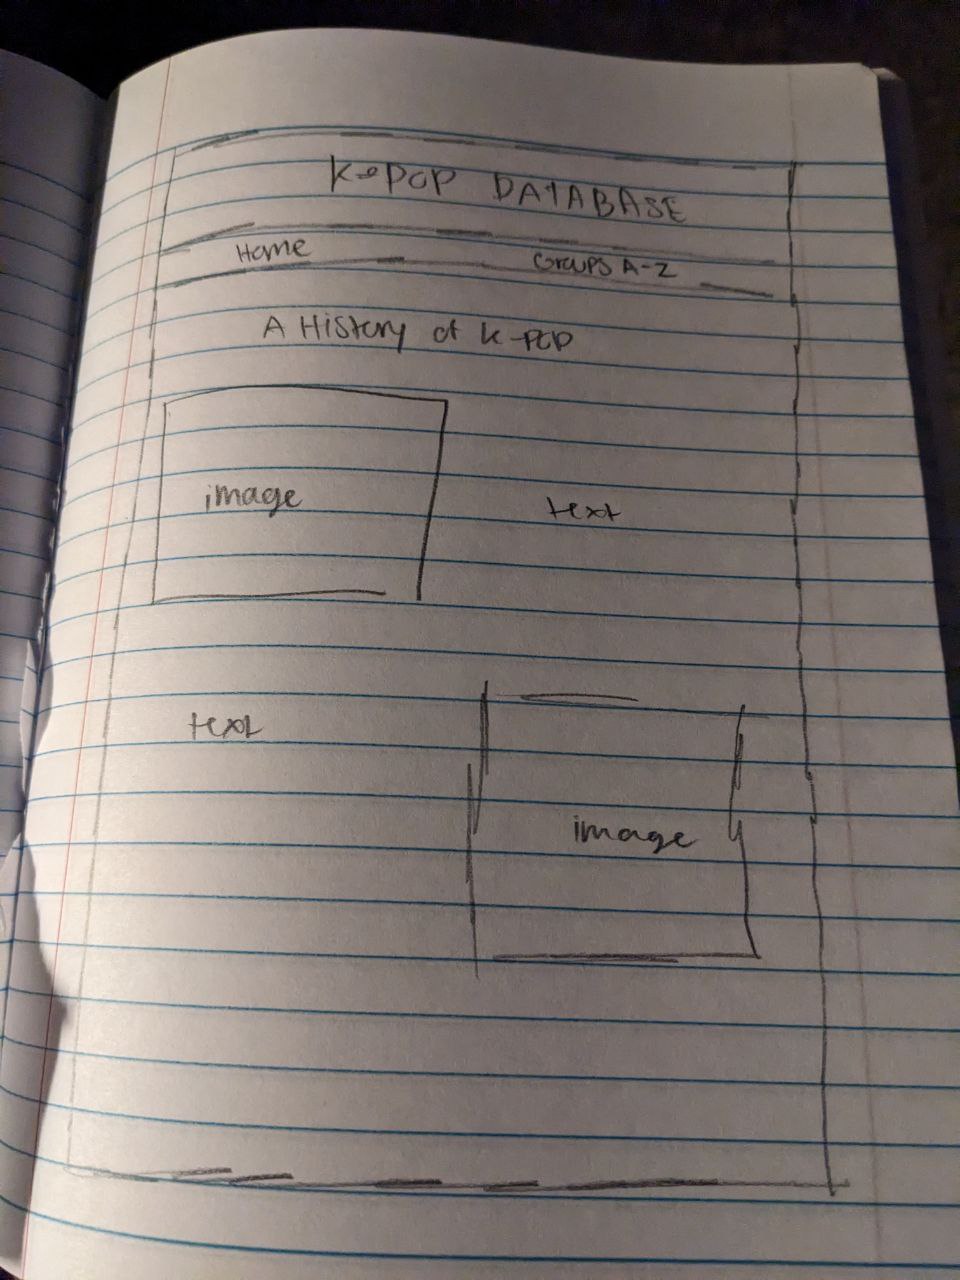 K-POP DATABASE
Home Groups A-Z
A History of K-POP
image text
text
image